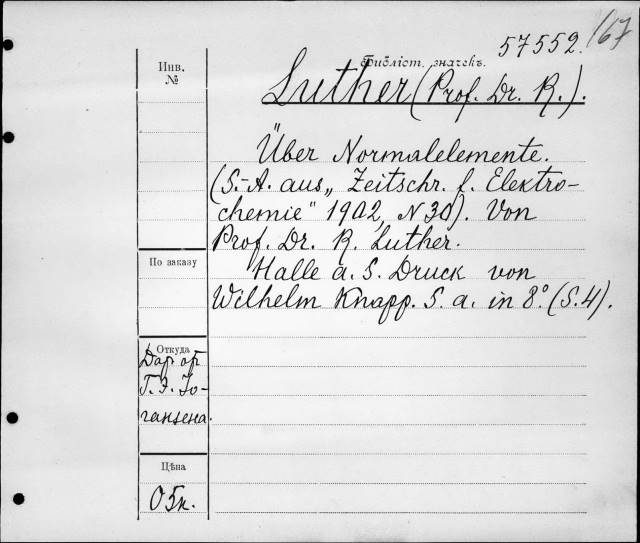 57552. 167
Инв. №
Библіот. значекъ.
Luther (Prof. Dr. R.).
Über Normalelemente.
(S.-A. aus „Zeitschr. f. Elektro-
chemie" 1902, N 30). Von
Prof. Dr. R. Luther.
По заказу
Halle a. S. Druck von
Wilhelm Knapp. S. a. in 8° (S. 4).
Откуда
Дар от
Г. Э. Io-
гансена.
Цѣна
05к.